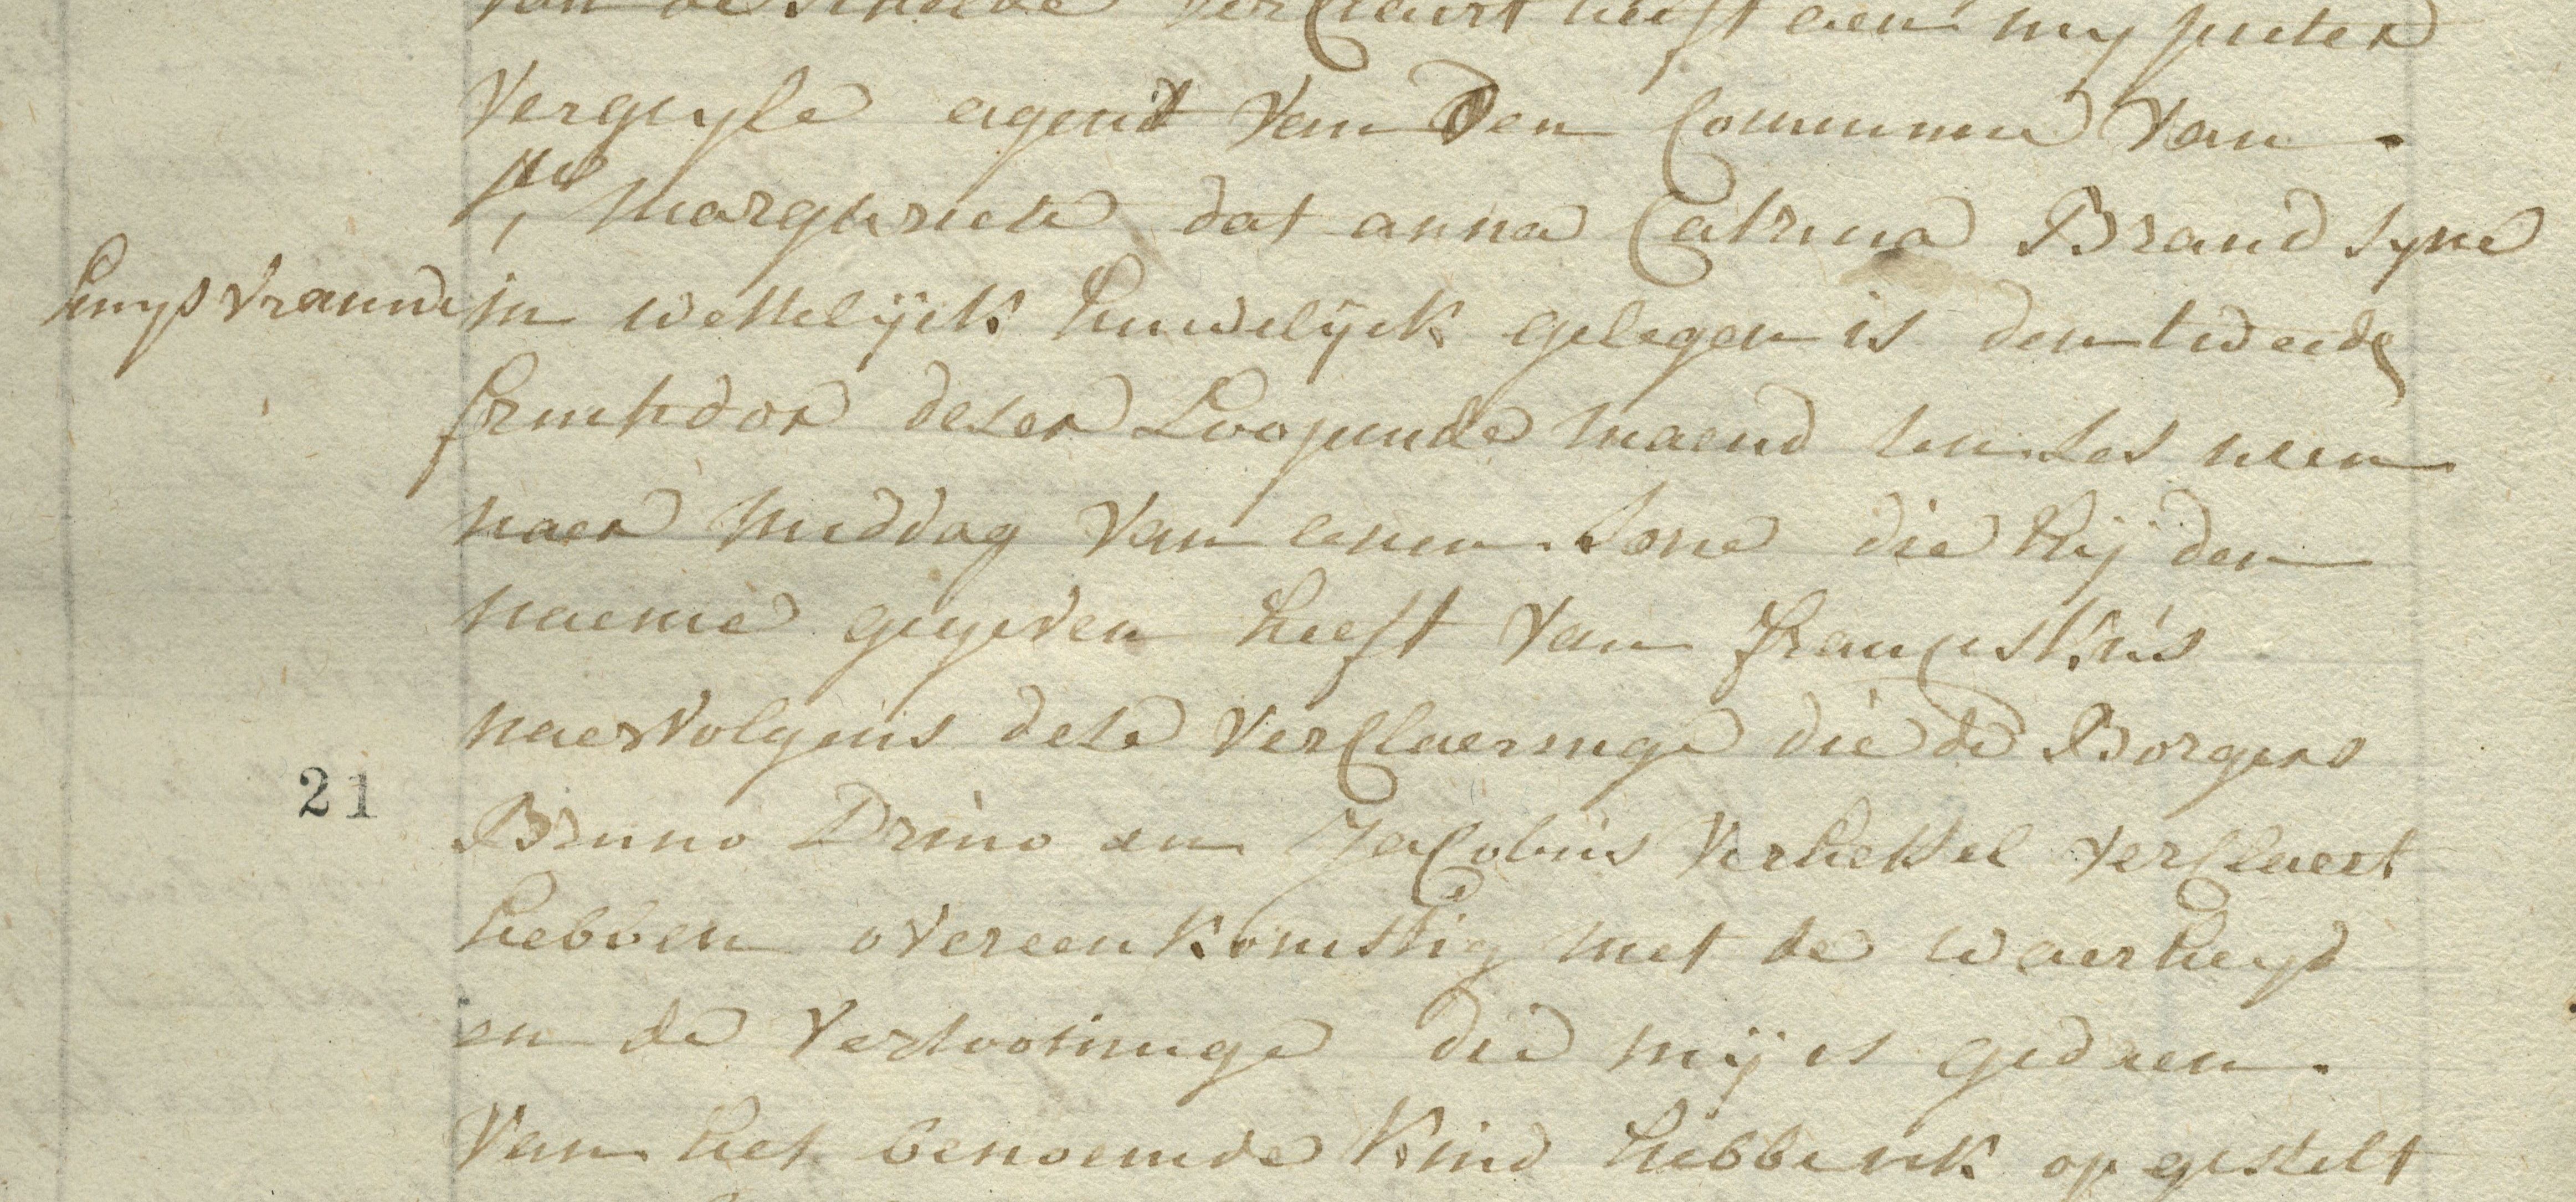 van de schelde verClaert heeft aen my pieter
Verguyle agent Van Den Commune Van
Ste Margueriete dat anna Catrina Brand syne
huys vrauwe in wettelijck huwelijck gelegen is den tweede
fruktidor deser Loopende maend ten ses uren
naer middag Van eenen Sone die hij den
naeme gegeven heeft Van franciskus
naervolgens dese verClaeringe die de Borgers
21
Bruno Drino en JaCobus Verhekel verClaert
hebben overeenkomstig met de waerheyd
en de vertooninge die mij is gedaen.
Van het benoemde kind hebbe ik op gestelt